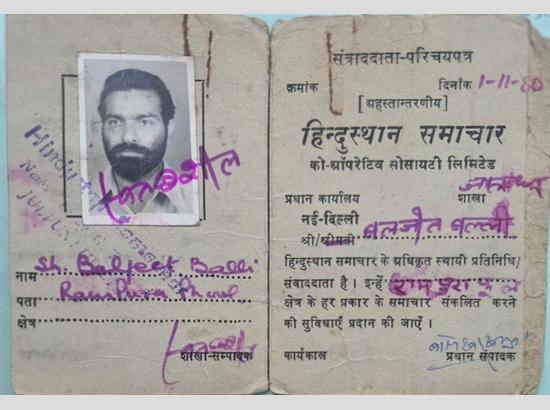 Hindu
नाम Sh. Baljeet Balli
पता Rampura Phul
क्षेत्र
शाखा-सम्पादक
संवाददाता-परिचयपत्र
क्रमांक दिनांक 1-11-80
[अहस्तान्तरणीय]
हिन्दुस्थान समाचार
को-ऑपरेटिव सोसायटी लिमिटेड
प्रधान कार्यालय शाखा
नई-दिल्ली
श्री/श्रीमती बलजीत बल्ली
हिन्दुस्थान समाचार के अधिकृत स्थायी प्रतिनिधि/
संवाददाता है। इन्हें रामपुरा फूल
क्षेत्र के हर प्रकार के समाचार संकलित करने
की सुविधाएँ प्रदान की जाएँ।
कार्यकाल प्रधान संपादक